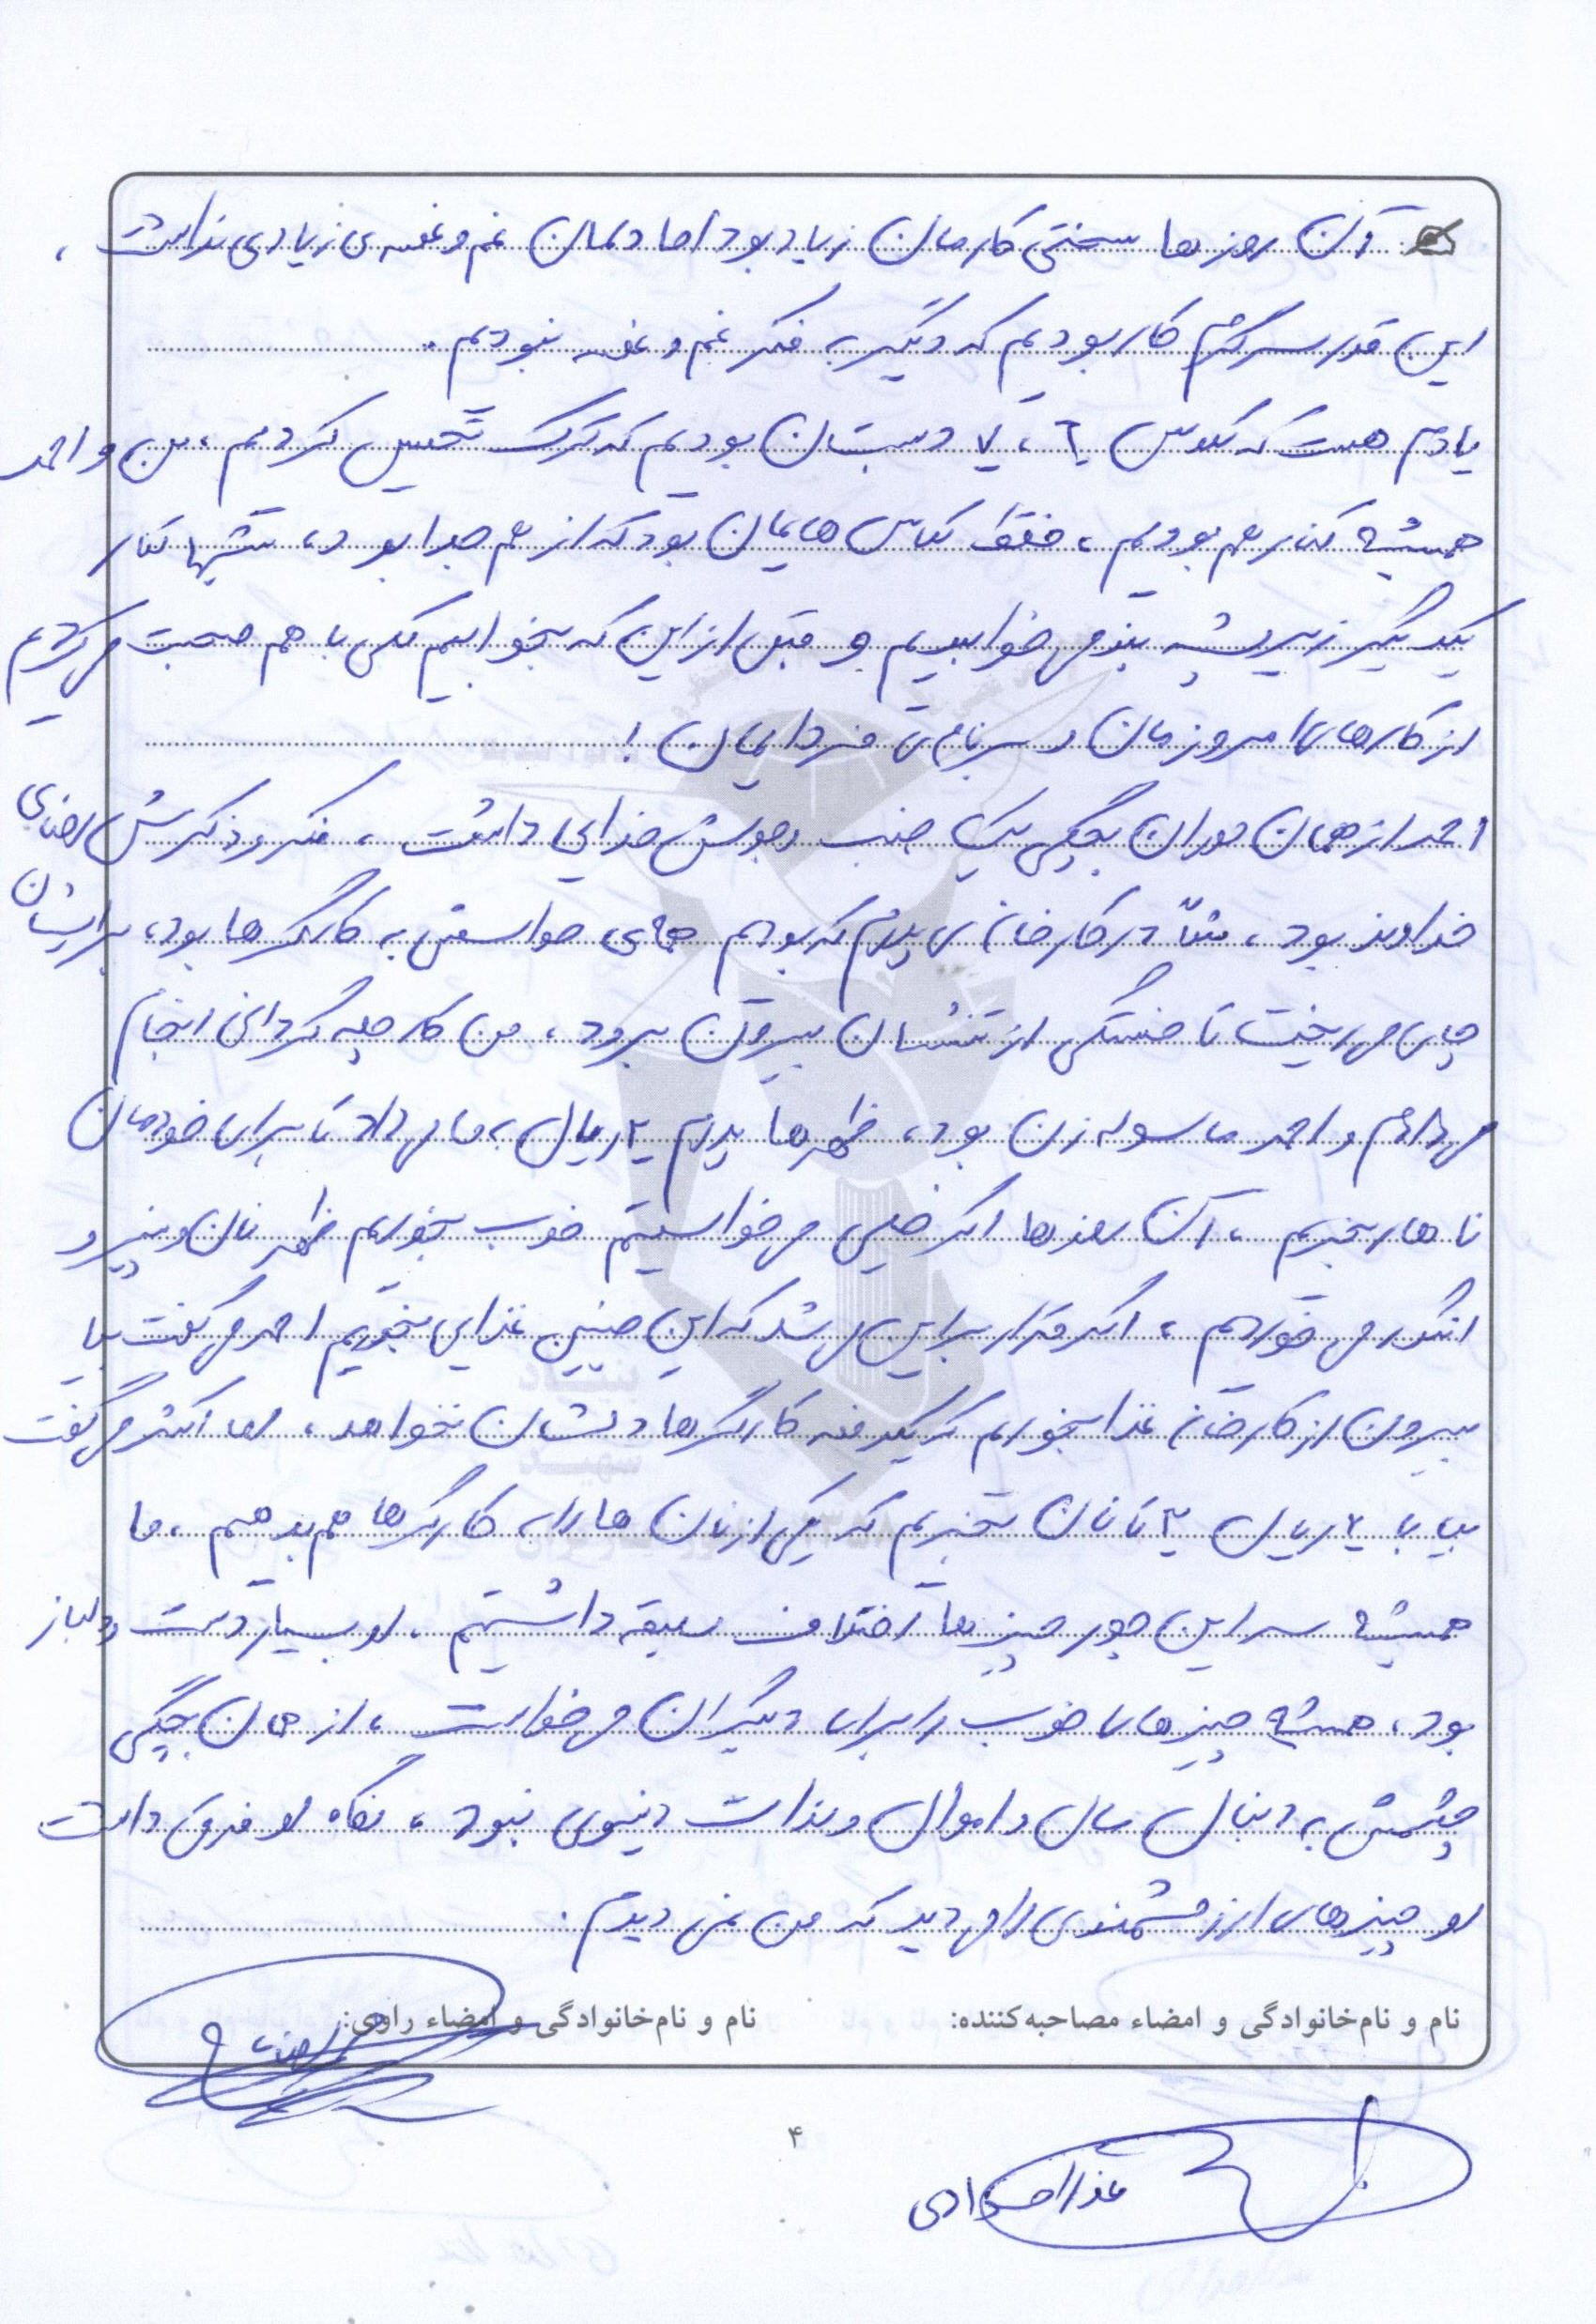 آن روزها سختی کارمان زیاد بود اما دلمان غم و غصه‌ی زیادی نداشت،
این قدر سرگرم کار بودیم که دیگر به فکر غم و غصه نبودیم.
یادم هست که کلاس ۶، ۷ دبستان بودیم که ترک تحصیل کردیم، من و احمد
همیشه کنار هم بودیم، فقط کلاس هایمان بود که از هم جدا بود، شبها کنار
یکدیگر زیر پشه بند می خوابیدیم و قبل از این که بخوابیم کلی با هم صحبت می کردیم
از کارهای امروزمان و برنامه‌ی فردایمان!
احمد از همان دوران بچگی یک جنب و جوش خدایی داشت، فکر و ذکرش رضای
خداوند بود، مثلاً در کارخانه ی پدرم که بودیم همه‌ی حواسش به کارگرها بود، برایشان
چای می ریخت تا خستگی از تنشان بیرون برود، من کار چله گردانی انجام
می دادم و احمد ماسوله زن بود، ظهرها پدرم ۲ ریال به ما می داد تا برای خودمان
ناهار بخریم، آن روزها اگر خیلی می خواستیم خوب بخوریم ظهر نان و پنیر و
انگور می خوردیم، اگر قرار بر این می شد که این چنین غذایی بخوریم احمد می گفت بیا
بیرون از کارخانه غذا بخوریم که یکدفعه کارگرها دلشان نخواهد، اما اکثر می گفت
بیا با ۲ ریال ۲ تا نان بخریم که یکی از نان ها را به کارگرها هم بدهیم، ما
همیشه سر این جور چیزها اختلاف سلیقه داشتیم، او بسیار دست و دلباز
بود، همیشه چیزهای خوب را برای دیگران می خواست، از همان بچگی
چشمش به دنبال مال و اموال و لذات دنیوی نبود، نگاه او فرق داشت
او چیزهای ارزشمندی را می دید که من نمی دیدم.
نام و نام‌خانوادگی و امضاء مصاحبه‌کننده: نام و نام‌خانوادگی و امضاء راوی:
۴